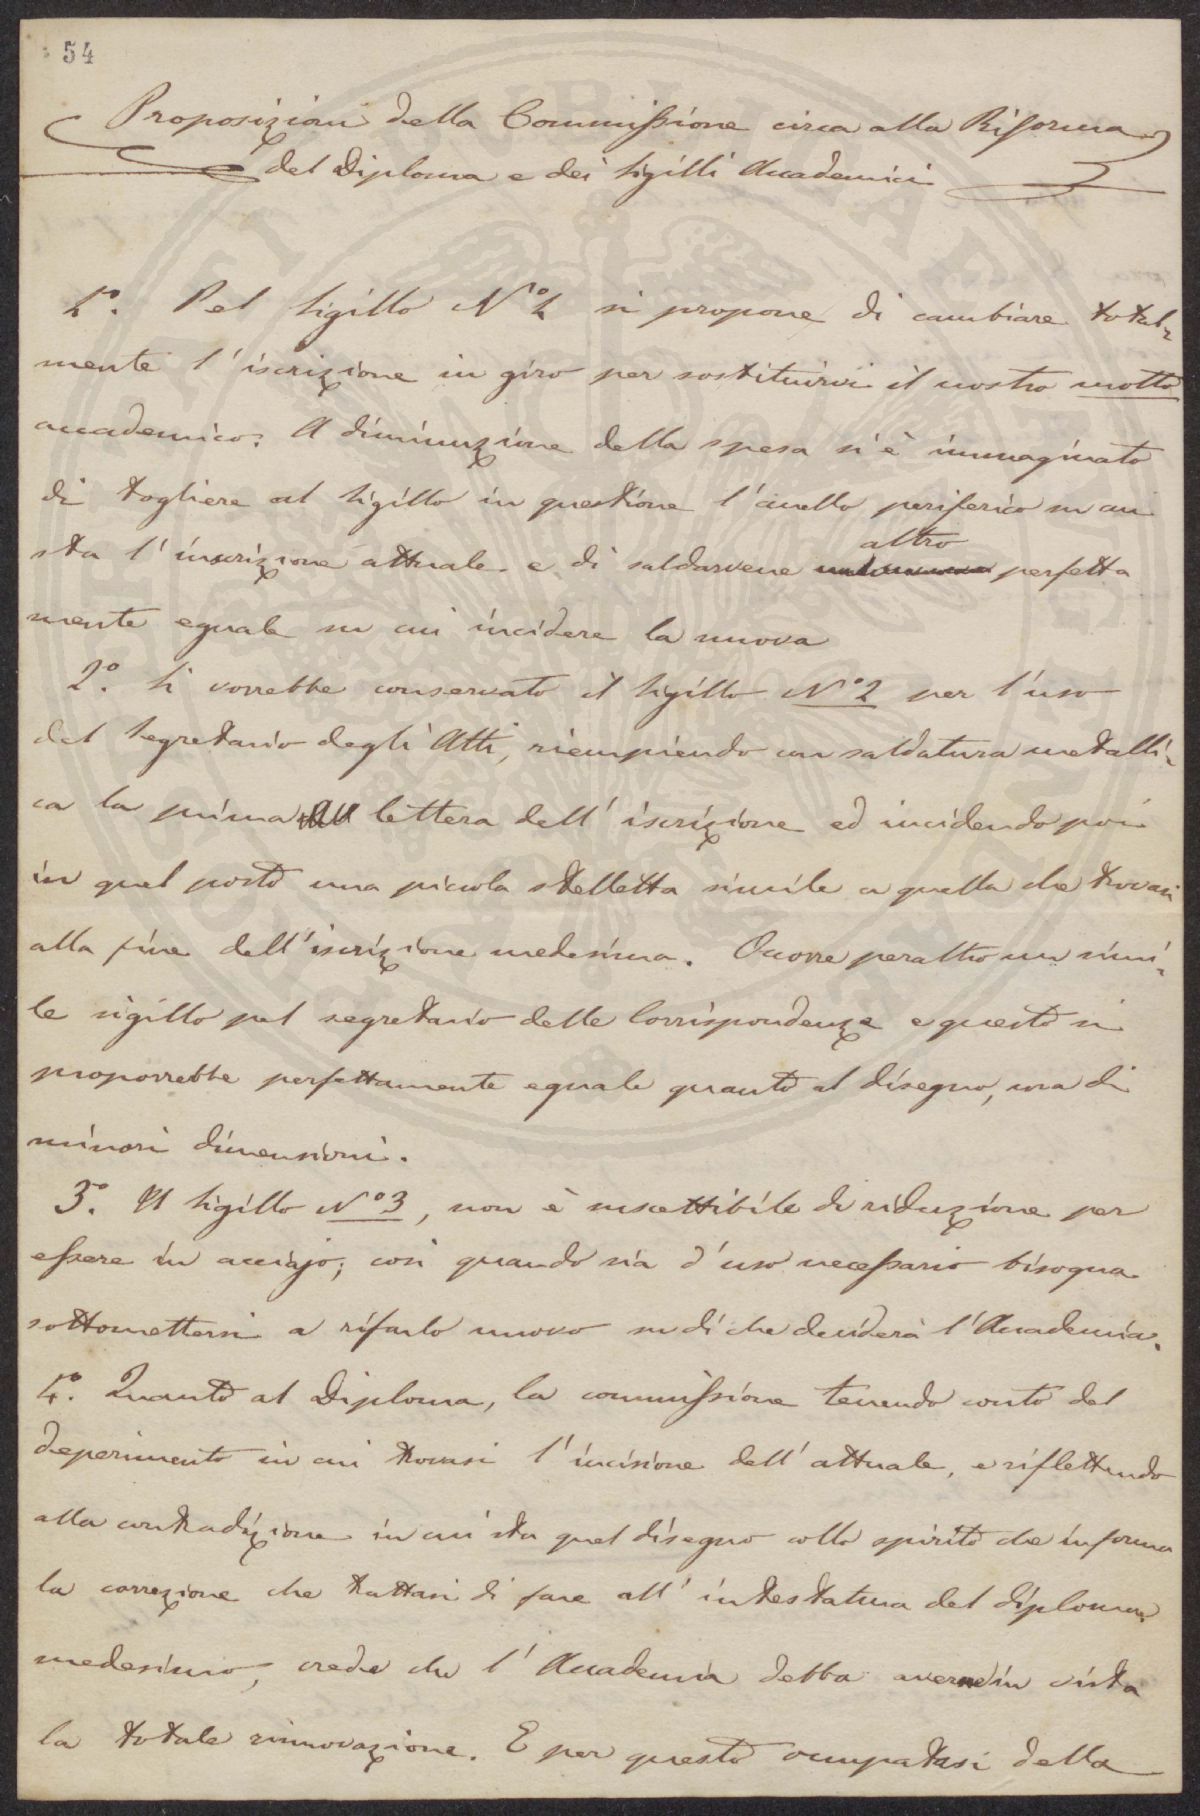 54
Proposizioni della Commissione circa alla Riforma
del Diploma e dei Sigilli Accademici
1º. Pel Sigillo Nº 1 si propone di cambiare total-
mente l'iscrizione in giro per sostituirvi il nostro motto
accademico. A diminuzione della spesa si è immaginato
di togliere al Sigillo in questione l'anello periferico su cui
sta l'inscrizione attuale e di saldarvene altro perfetta
mente eguale su cui incidere la nuova
2º. Si vorrebbe conservato il Sigillo Nº 2 per l'uso
del Segretario degli Atti, riempiendo con saldatura metalli-
ca la prima lettera dell'iscrizione ed incidendo poi
in quel posto una piccola stelletta simile a quella che trovasi
alla fine dell'iscrizione medesima. Occorre peraltro un simi-
le sigillo pel segretario delle Corrispondenze e questo si
proporrebbe perfettamente eguale quanto al disegno, ma di
minori dimensioni.
3º. Il Sigillo Nº 3, non è suscettibile di riduzione per
essere in acciajo; così quando sia d'uso necessario bisogna
sottomettersi a rifarlo nuovo su di che deciderà l'Accademia.
4º. Quanto al Diploma, la commissione tenendo conto del
deperimento in cui trovasi l'incisione dell'attuale, e riflettendo
alla contradizione in cui sta quel disegno collo spirito che informa
la correzione che trattasi di fare all'intestatura del diploma
medesimo, crede che l'Accademia debba averne in vista
la totale rinnovazione. E per questo occupatasi della